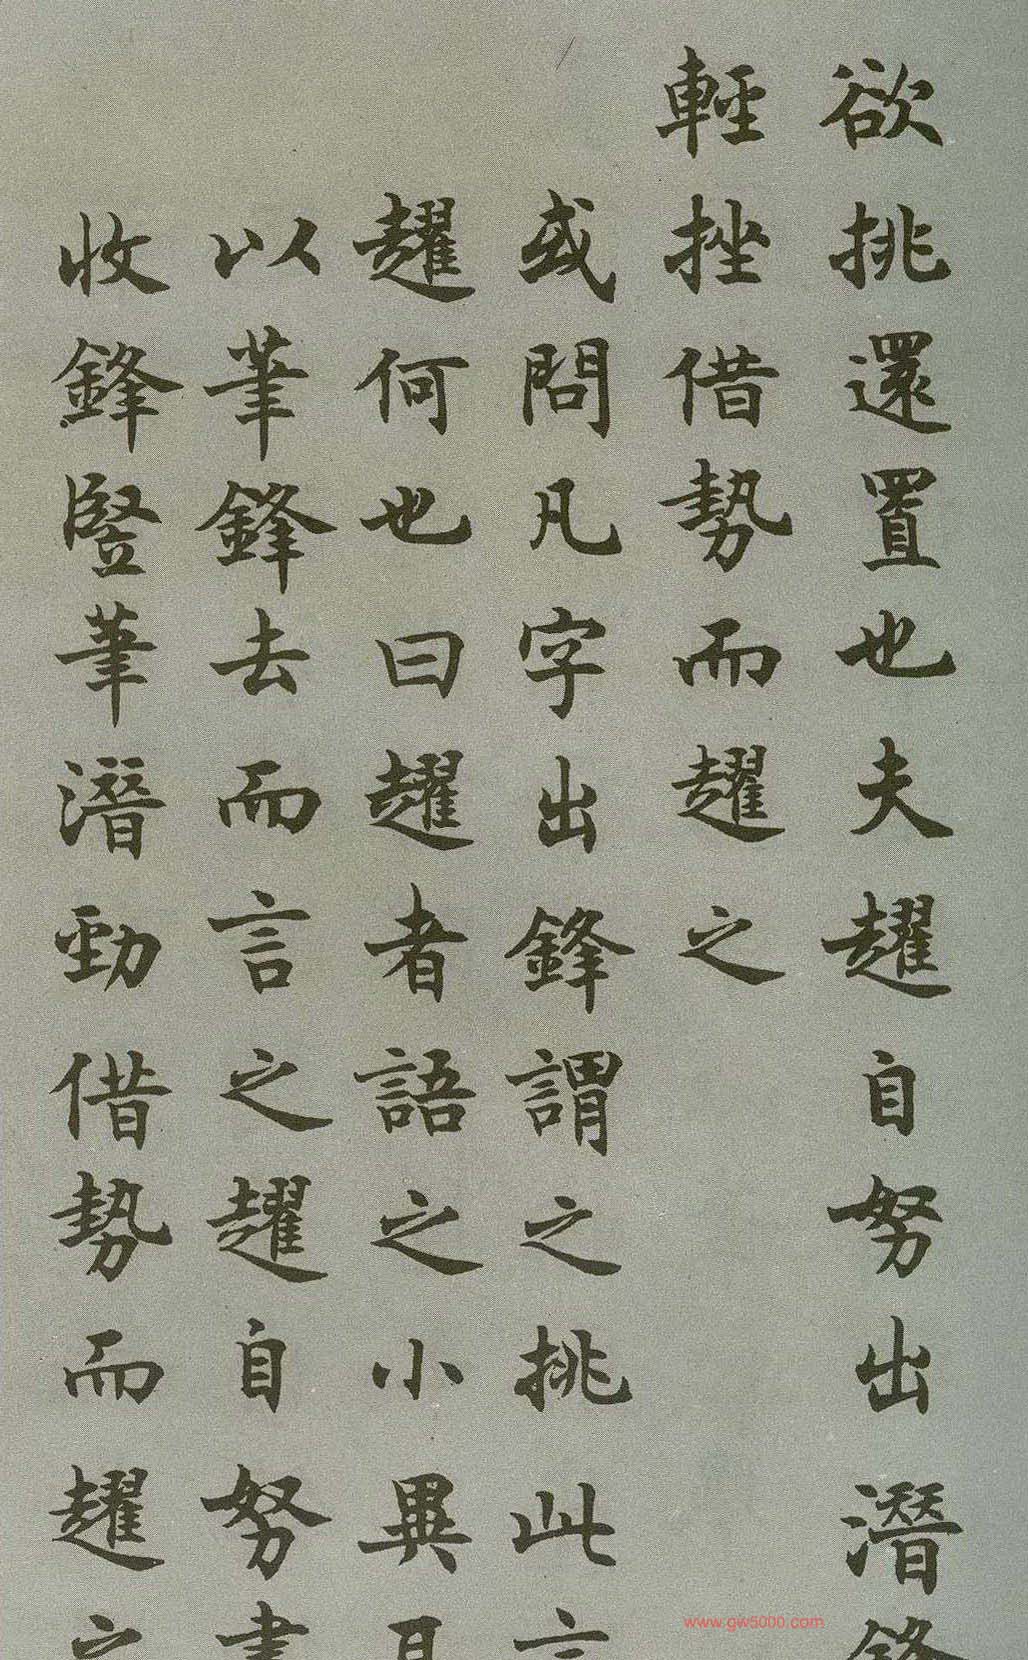 欲挑還置也夫趯自努出潛鋒
輕挫借勢而趯之
或問凡字出鋒謂之挑此言
趯何也曰趯者語之小異其
以筆鋒去而言之趯自努畫
收鋒竪筆潛勁借勢而趯之
www.gw5000.com